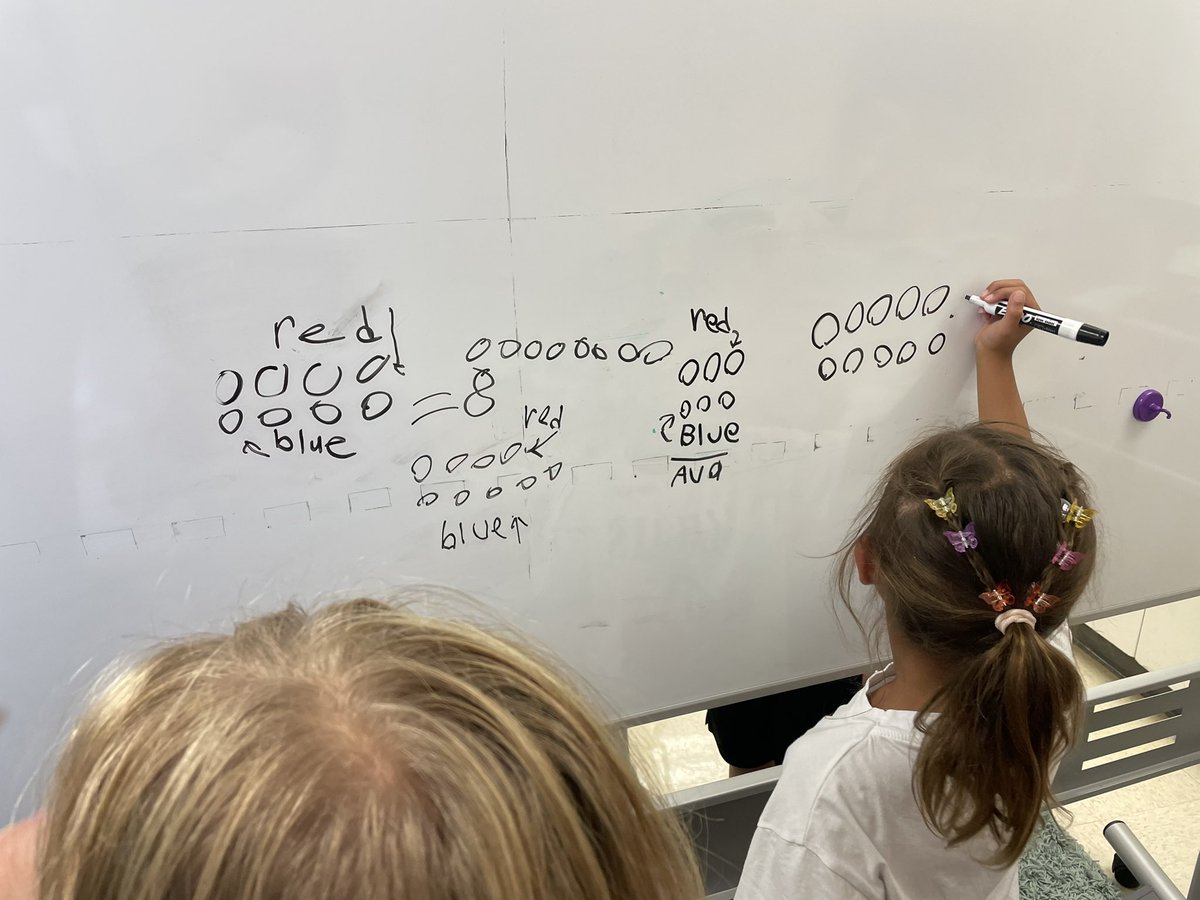 red
blue
=
8
red
blue
red
BLUE
AVA